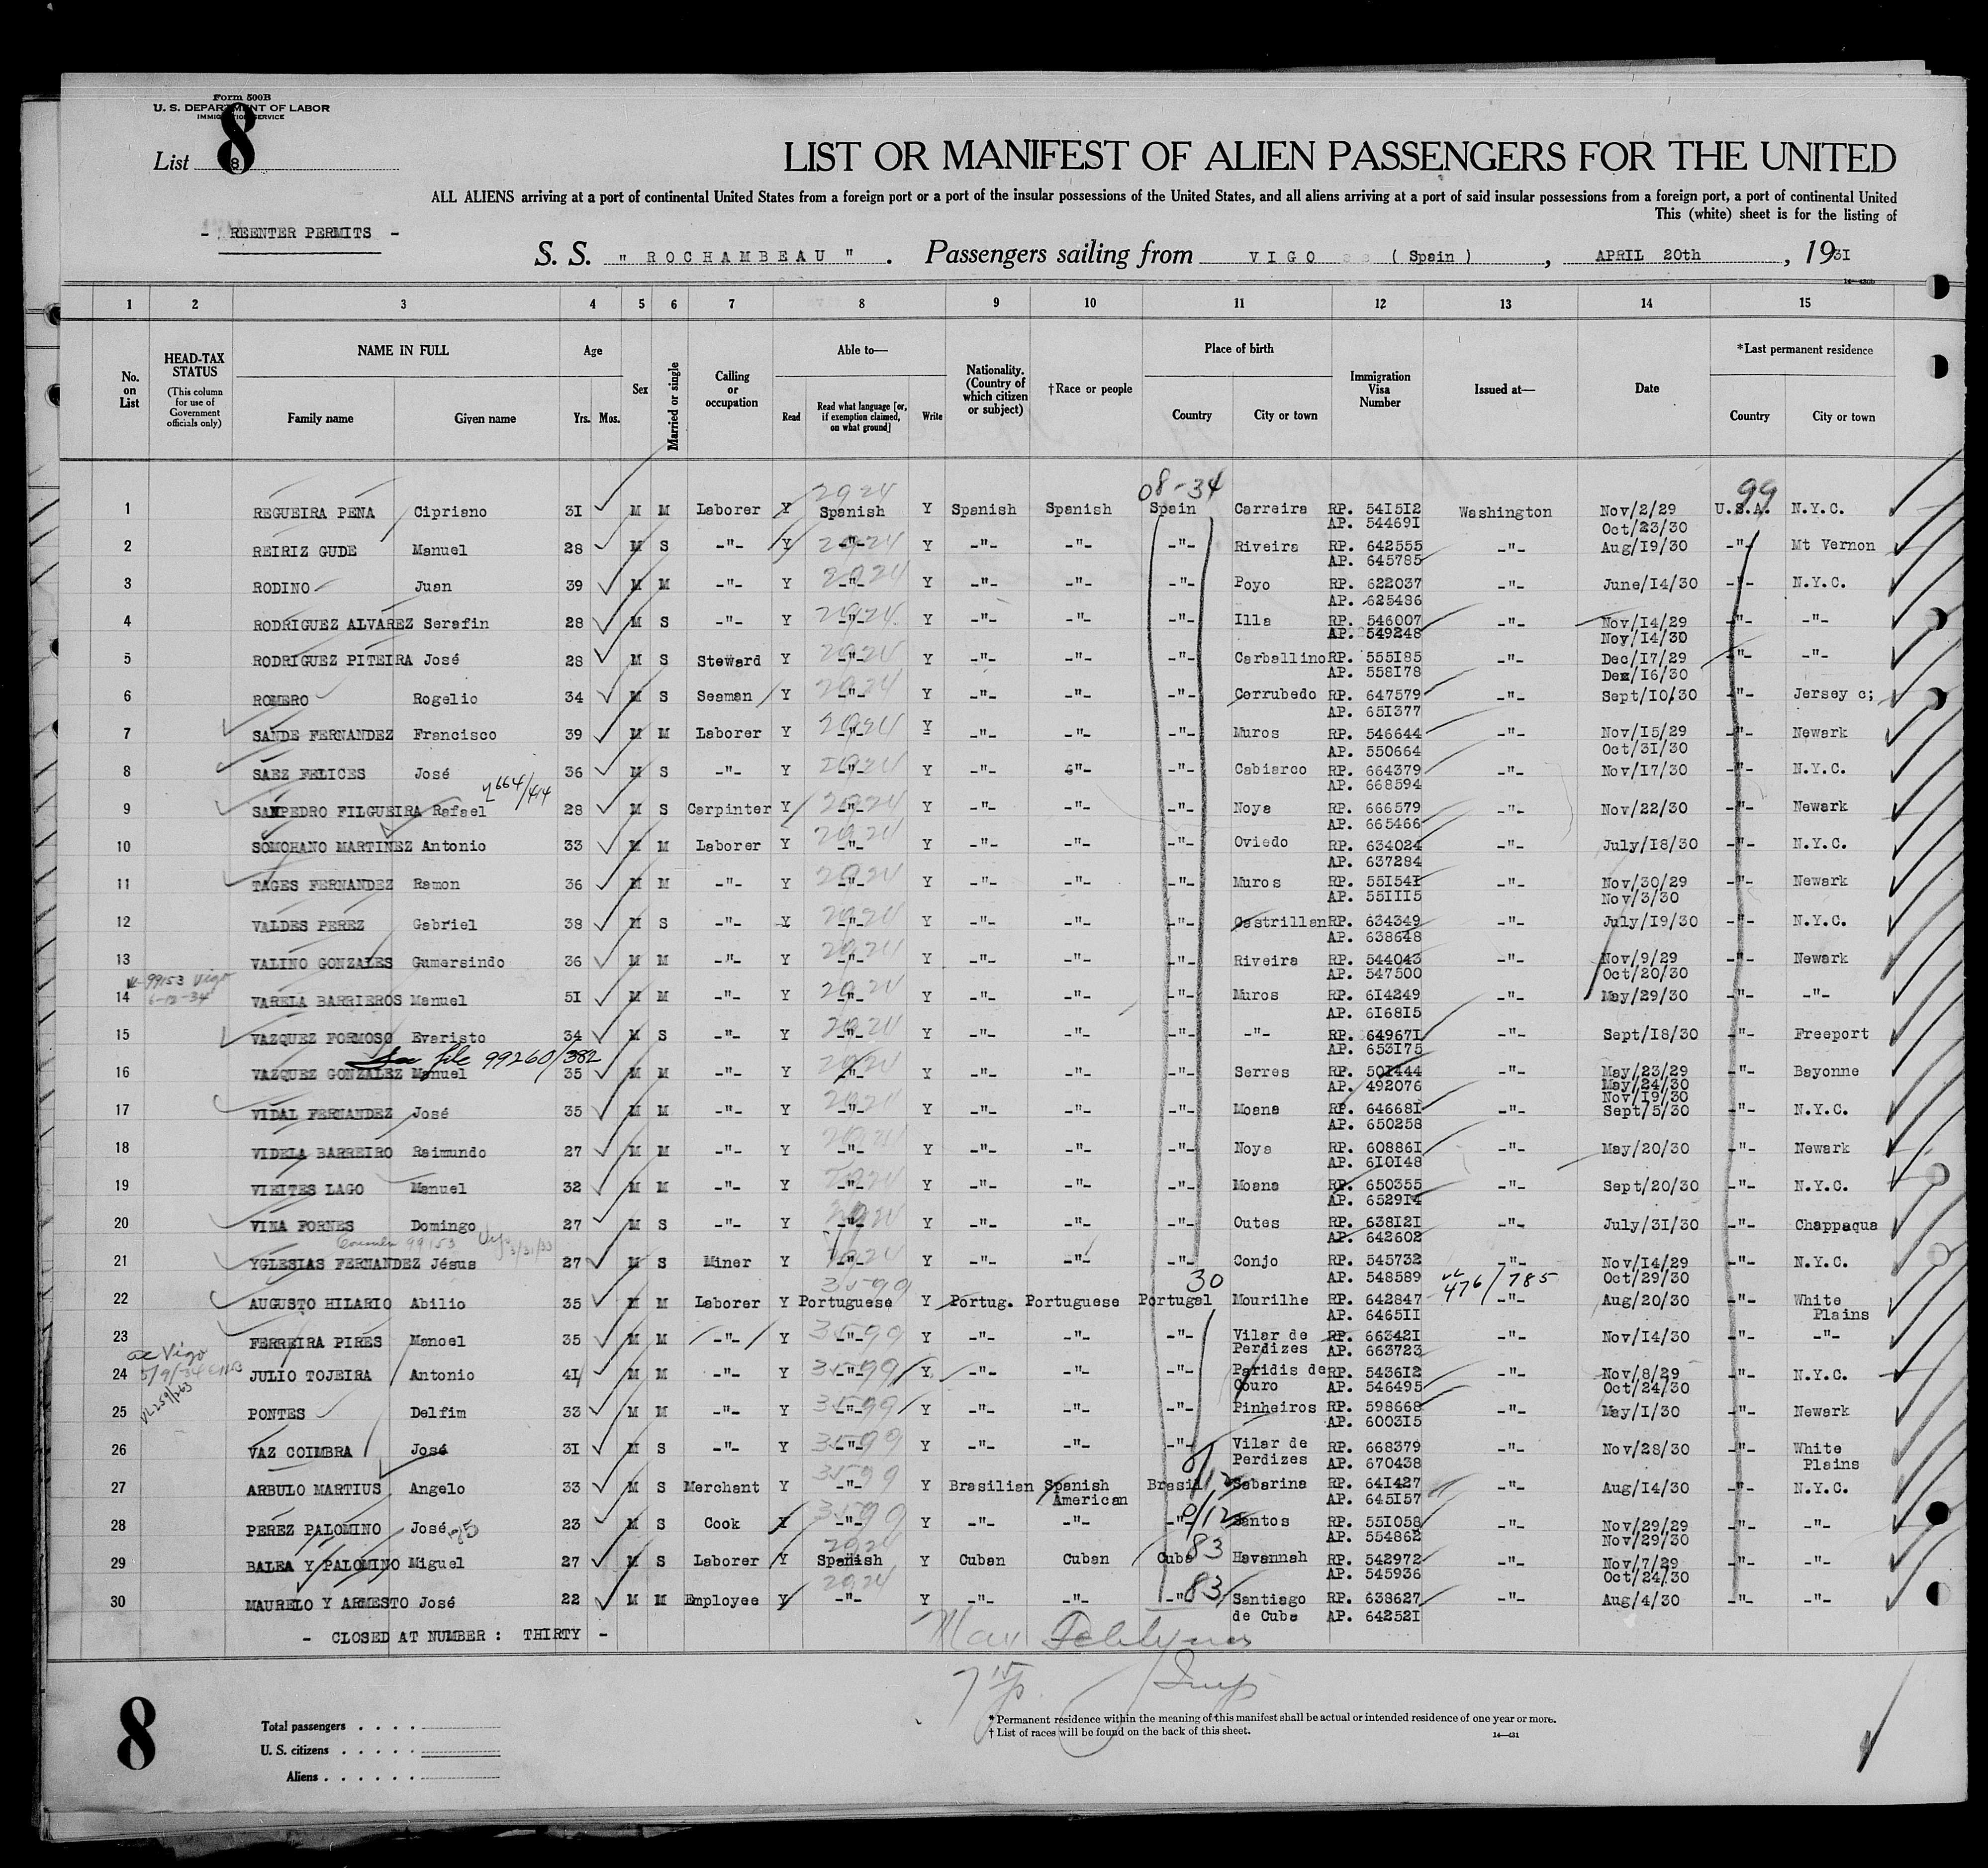 Form 500B
U. S. DEPARTMENT OF LABOR
IMMIGRATION SERVICE
8
List 8.
LIST OR MANIFEST OF ALIEN PASSENGERS FOR THE UNITED
ALL ALIENS arriving at a port of continental United States from a foreign port or a port of the insular possessions of the United States, and all aliens arriving at a port of said insular possessions from a foreign port, a port of continental United
This (white) sheet is for the listing of
- REENTER PERMITS -
S. S. " ROCHAMBEAU " . Passengers sailing from VIGO ( Spain ) , APRIL 20th , 1931
14—430b
1 2 3 4 5 6 7 8 9 10 11 12 13 14 15
No. on List
HEAD-TAX STATUS (This column for use of Government officials only)
NAME IN FULL Family name Given name
Age Yrs. Mos.
Sex
Married or single
Calling or occupation
Able to— Read Read what language [or, if exemption claimed, on what ground] Write
Nationality. (Country of which citizen or subject)
†Race or people
Place of birth Country City or town
Immigration Visa Number
Issued at—
Date
*Last permanent residence Country City or town
2924 08-34 99
1 REGUEIRA PENA Cipriano 31 M M Laborer Y Spanish Y Spanish Spanish Spain Carreira RP. 541512 Washington Nov/2/29 U.S.A. N.Y.C.
AP. 544691 Oct/23/30
2 REIRIZ GUDE Manuel 28 M S -"- Y 2924 -"- Y -"- -"- -"- Riveira RP. 642555 -"- Aug/19/30 -"- Mt Vernon
AP. 645785
3 RODINO Juan 39 M M -"- Y 2924 -"- Y -"- -"- -"- Poyo RP. 622037 -"- June/14/30 -"- N.Y.C.
AP. 625486
4 RODRIGUEZ ALVAREZ Serafin 28 M S -"- Y 2924 -"- Y -"- -"- -"- Illa RP. 546007 -"- Nov/14/29 -"- -"-
AP. 549248 Nov/14/30
5 RODRIGUEZ PITEIRA José 28 M S Steward Y 2924 -"- Y -"- -"- -"- Carballino RP. 555185 -"- Dec/17/29 -"- -"-
AP. 558178 Dez/16/30
6 ROMERO Rogelio 34 M S Seaman Y 2924 -"- Y -"- -"- -"- Corrubedo RP. 647579 -"- Sept/10/30 -"- Jersey c;
AP. 651377
7 SANDE FERNANDEZ Francisco 39 M M Laborer Y 2924 -"- Y -"- -"- -"- Muros RP. 546644 -"- Nov/15/29 -"- Newark
AP. 550664 Oct/31/30
8 SAEZ FELICES José 36 M S -"- Y 2924 -"- Y -"- -"- -"- Cabiarco RP. 664379 -"- Nov/17/30 -"- N.Y.C.
664/414 AP. 668594
9 SAMPEDRO FILGUEIRA Rafael 28 M S Carpinter Y 2924 -"- Y -"- -"- -"- Noya RP. 666579 -"- Nov/22/30 -"- Newark
AP. 665466
10 SOMOHANO MARTINEZ Antonio 33 M M Laborer Y 2924 -"- Y -"- -"- -"- Oviedo RP. 634024 -"- July/18/30 -"- N.Y.C.
AP. 637284
11 TAGES FERNANDEZ Ramon 36 M M -"- Y 2924 -"- Y -"- -"- -"- Muros RP. 551541 -"- Nov/30/29 -"- Newark
AP. 551115 Nov/3/30
12 VALDES PEREZ Gabriel 38 M S -"- Y 2924 -"- Y -"- -"- -"- Castrillan RP. 634349 -"- July/19/30 -"- N.Y.C.
AP. 638648
13 VALINO GONZALES Gumersindo 36 M M -"- Y 2924 -"- Y -"- -"- -"- Riveira RP. 544043 -"- Nov/9/29 -"- Newark
99153 Vigo AP. 547500 Oct/20/30
6-12-34
14 VARELA BARRIEROS Manuel 51 M M -"- Y 2924 -"- Y -"- -"- -"- Muros RP. 614249 -"- May/29/30 -"- -"-
AP. 616815
15 VAZQUEZ FORMOSO Evaristo 34 M S -"- Y 2924 -"- Y -"- -"- -"- -"- RP. 649671 -"- Sept/18/30 -"- Freeport
See file 99260/382 AP. 653175
16 VAZQUEZ GONZALEZ Manuel 35 M M -"- Y 2924 -"- Y -"- -"- -"- Serres RP. 501444 -"- May/23/29 -"- Bayonne
AP. 492076 May/24/30
Nov/19/30
17 VIDAL FERNANDEZ José 35 M M -"- Y 2924 -"- Y -"- -"- -"- Moana RP. 646681 -"- Sept/5/30 -"- N.Y.C.
AP. 650258
18 VIDELA BARREIRO Raimundo 27 M M -"- Y 2924 -"- Y -"- -"- -"- Noya RP. 608861 -"- May/20/30 -"- Newark
AP. 610148
19 VIEITES LAGO Manuel 32 M M -"- Y 2924 -"- Y -"- -"- -"- Moana RP. 650355 -"- Sept/20/30 -"- N.Y.C.
AP. 652914
20 VINA FORNES Domingo 27 M S -"- Y 2924 -"- Y -"- -"- -"- Outes RP. 638121 -"- July/31/30 -"- Chappaqua
99153 3/31/33 AP. 642602
21 YGLESIAS FERNANDEZ Jésus 27 M S Miner Y 2924 -"- Y -"- -"- -"- Conjo RP. 545732 -"- Nov/14/29 -"- N.Y.C.
3599 30 AP. 548589 476/785 Oct/29/30
22 AUGUSTO HILARIO Abilio 35 M M Laborer Y Portuguese Y Portug. Portuguese Portugal Mourilhe RP. 642847 -"- Aug/20/30 -"- White
AP. 646511 Plains
23 FERREIRA PIRES Manoel 35 M M -"- Y 3599 -"- Y -"- -"- -"- Vilar de RP. 663421 -"- Nov/14/30 -"- -"-
Perdizes AP. 663723
Vigo
5/9/34
24 JULIO TOJEIRA Antonio 41 M M -"- Y 3599 -"- Y -"- -"- -"- Paridis de RP. 543612 -"- Nov/8/29 -"- N.Y.C.
Couro AP. 546495 Oct/24/30
VL259/263
25 PONTES Delfim 33 M M -"- Y 3599 -"- Y -"- -"- -"- Pinheiros RP. 598668 -"- May/1/30 -"- Newark
AP. 600315
26 VAZ COIMBRA José 31 M S -"- Y 3599 -"- Y -"- -"- -"- Vilar de RP. 668379 -"- Nov/28/30 -"- White
Perdizes AP. 670438 Plains
27 ARBULO MARTIUS Angelo 33 M S Merchant Y 3599 -"- Y Brasilian Spanish Brasil Sabarina RP. 641427 -"- Aug/14/30 -"- N.Y.C.
American AP. 645157
28 PEREZ PALOMINO José 23 M S Cook Y 3599 -"- Y -"- -"- -"- Santos RP. 551058 -"- Nov/29/29 -"- -"-
AP. 554862 Nov/29/30
29 BALEA Y PALOMINO Miguel 27 M S Laborer Y 2924 Spanish Y Cuban Cuban Cuba 83 Havannah RP. 542972 -"- Nov/7/29 -"- -"-
AP. 545936 Oct/24/30
30 MAURELO Y ARMESTO José 22 M M Employee Y 2924 -"- Y -"- -"- -"- 83 Santiago RP. 638627 -"- Aug/4/30 -"- -"-
de Cuba AP. 642521
- CLOSED AT NUMBER : THIRTY -
8
Total passengers . . . .
U. S. citizens . . . . .
Aliens . . . . . .
*Permanent residence within the meaning of this manifest shall be actual or intended residence of one year or more.
†List of races will be found on the back of this sheet.
14—431